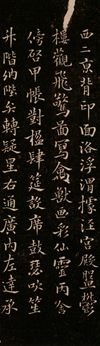 西二京背邙面洛浮渭據涇宮殿盤鬱
樓觀飛驚圖寫禽獸畫彩仙靈丙舍
傍啓甲帳對楹肆筵設席鼓瑟吹笙
升階納陛弁轉疑星右通廣內左達承